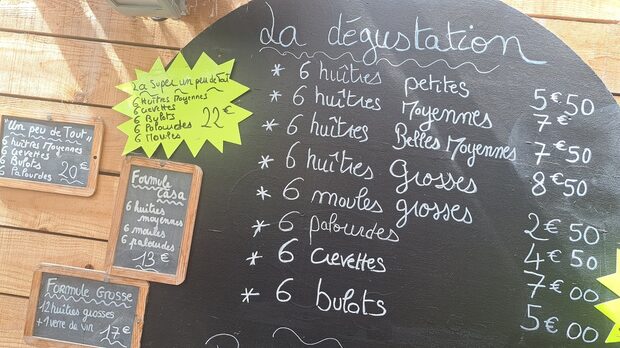 La dégustation
* 6 huîtres petites 5€50
* 6 huîtres Moyennes 7€
* 6 huîtres Belles Moyennes 7€50
* 6 huîtres grosses 8€50
* 6 moules grosses 2€50
* 6 palourdes 4€50
* 6 crevettes 7€00
* 6 bulots 5€00
La Super un peu de Tout
6 Huîtres Moyennes
6 crevettes
6 Bulots
6 Palourdes
6 Moules
22€
"Un peu de Tout"
6 huîtres Moyennes
6 crevettes
6 Bulots
6 Palourdes
20€
Formule
Casa
6 huîtres
moyennes
6 moules
6 palourdes
13€
Formule Grosse
12 huîtres grosses
+ 1 verre de vin 17€